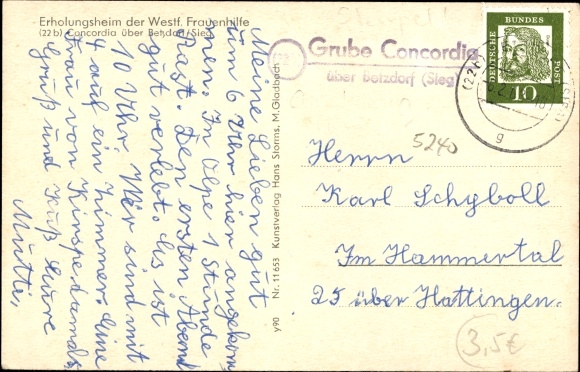 Erholungsheim der Westf. Frauenhilfe
(22b) Concordia über Betzdorf/Sieg
Meine Lieben gut
um 6 Uhr hier angekom
men. In Olpe 1 Stunde
Rast. Den ersten Abend
gut verlebt. Es ist
10 Uhr. Wir sind mit
4 auf ein Zimmer. Eine
Frau von
Gruß und Kuß Eure
Mutti,
y90 Nr. 11653 Kunstverlag Hans Storms, M.Gladbach
Stempel!
Grube Concordia
über betzdorf (Sieg)
DEUTSCHE BUNDES POST
10
(22
g
5240
Herrn
Karl Schyboll
Im Hammertal
25 über Hattingen.
3,5€